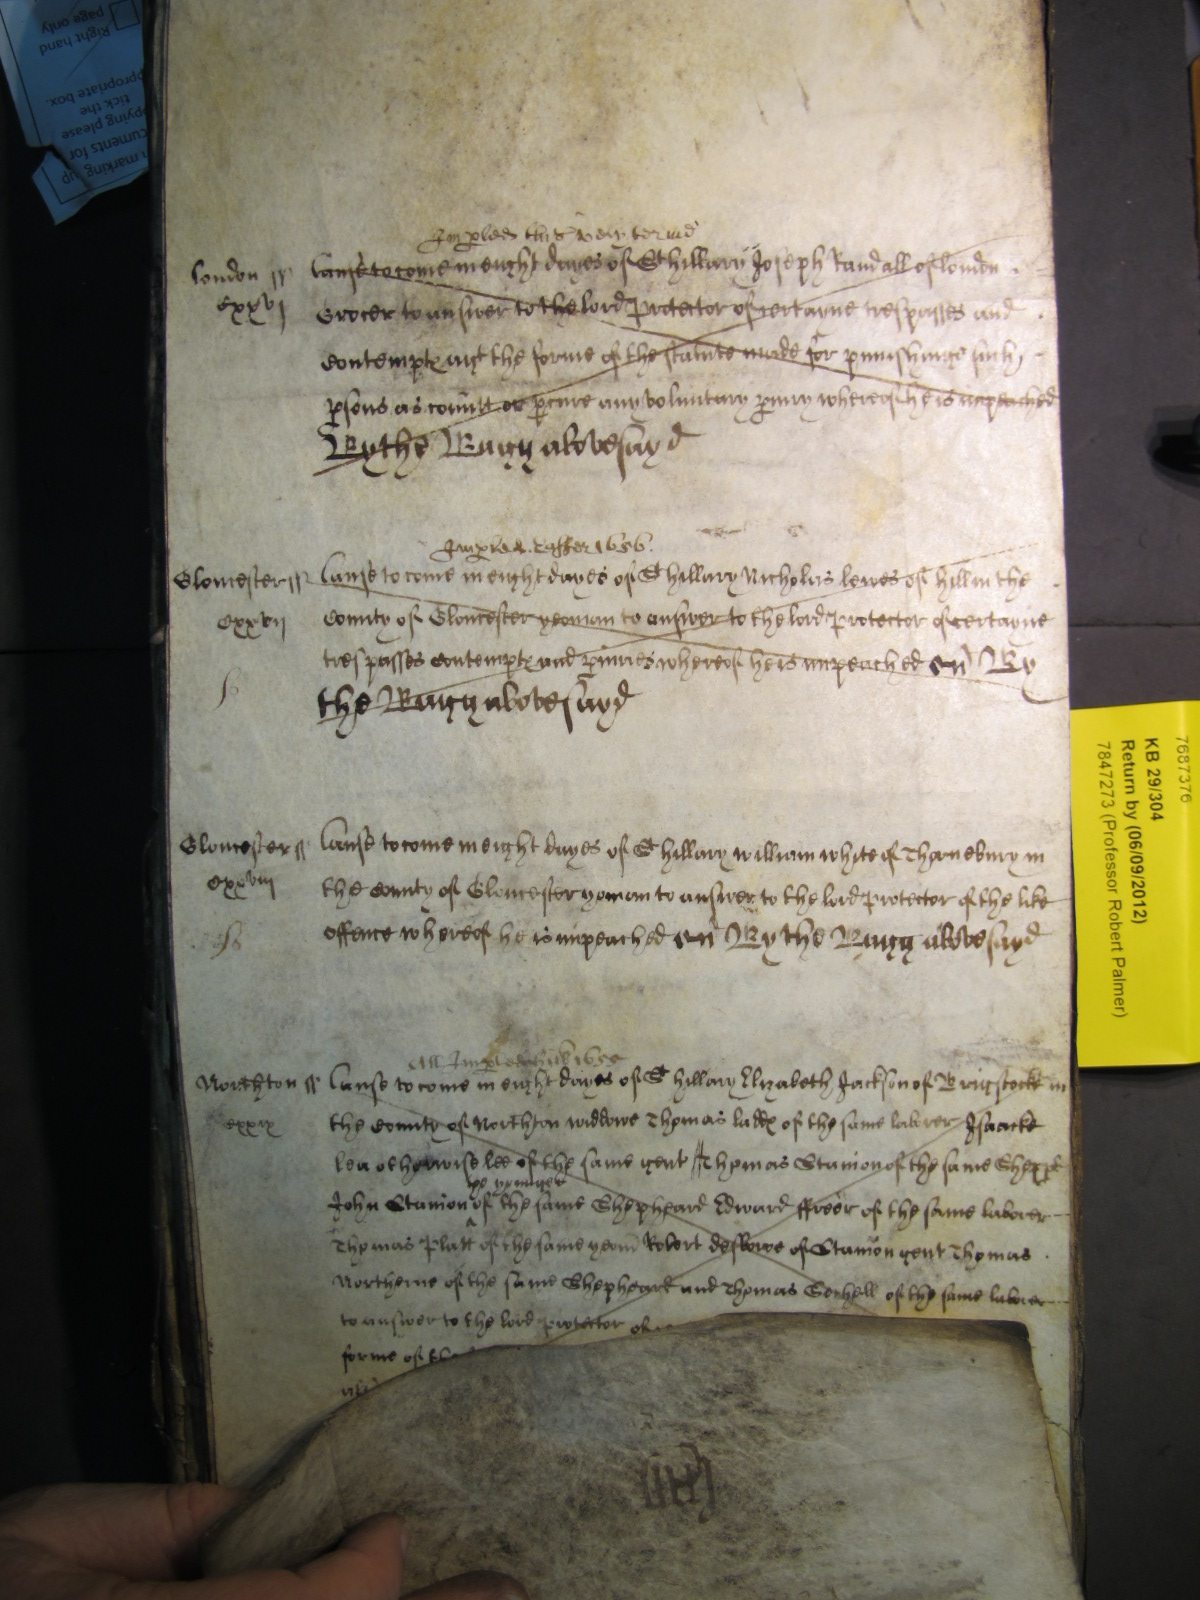 Impled this very terme
London ss Cause to come in eight dayes of St hillary Joseph Randall of london
cxxvj Grocer to answer to the lord Protector of certayne trespasses and
contemptx agt the forme of the statute made for punishinge such
psons as comitt or pcure any voluntary piury whereof he is impeached
By the Bagg abovesayd
Impled Easter 1656.
Gloucester ss Cause to come in eight dayes of St hillary Nicholas lewes of hill in the
cxxvij County of Gloucester yeoman to answer to the lord Protector of certayne
trespasses contemptx and piuries whereof he is impeached en By
the Bagg abovesayd
Gloucester ss Cause to come in eight dayes of St hillary william white of Thornebury in
cxxviij the County of Gloucester yoman to answer to the lord Protector of the like
offence whereof he is impeached en By the Bagg abovesayd
All Impled 1655
Northton ss Cause to come in eight dayes of St hillary Elizabeth Jackson of Brigstock in
cxxix the County of Northton widdowe Thomas laddx of the same laborer Isaacke
lea otherwise lee of the same gent Thomas Stanion of the same Shepp
ye younger
John Stanion of the same Shepheard Edward ffreer of the same laborer
Thomas Platt of the same yeom Robert of Stanion gent Thomas
Northerne of the same Shepheard and Thomas of the same laborer
to answer to the lord protector of
forme of the
7687376
KB 29/304
Return by (06/09/2012)
7847273 (Professor Robert Palmer)
marking up
cuments for
pying please
tick the
ppropriate box.
Right hand
page only